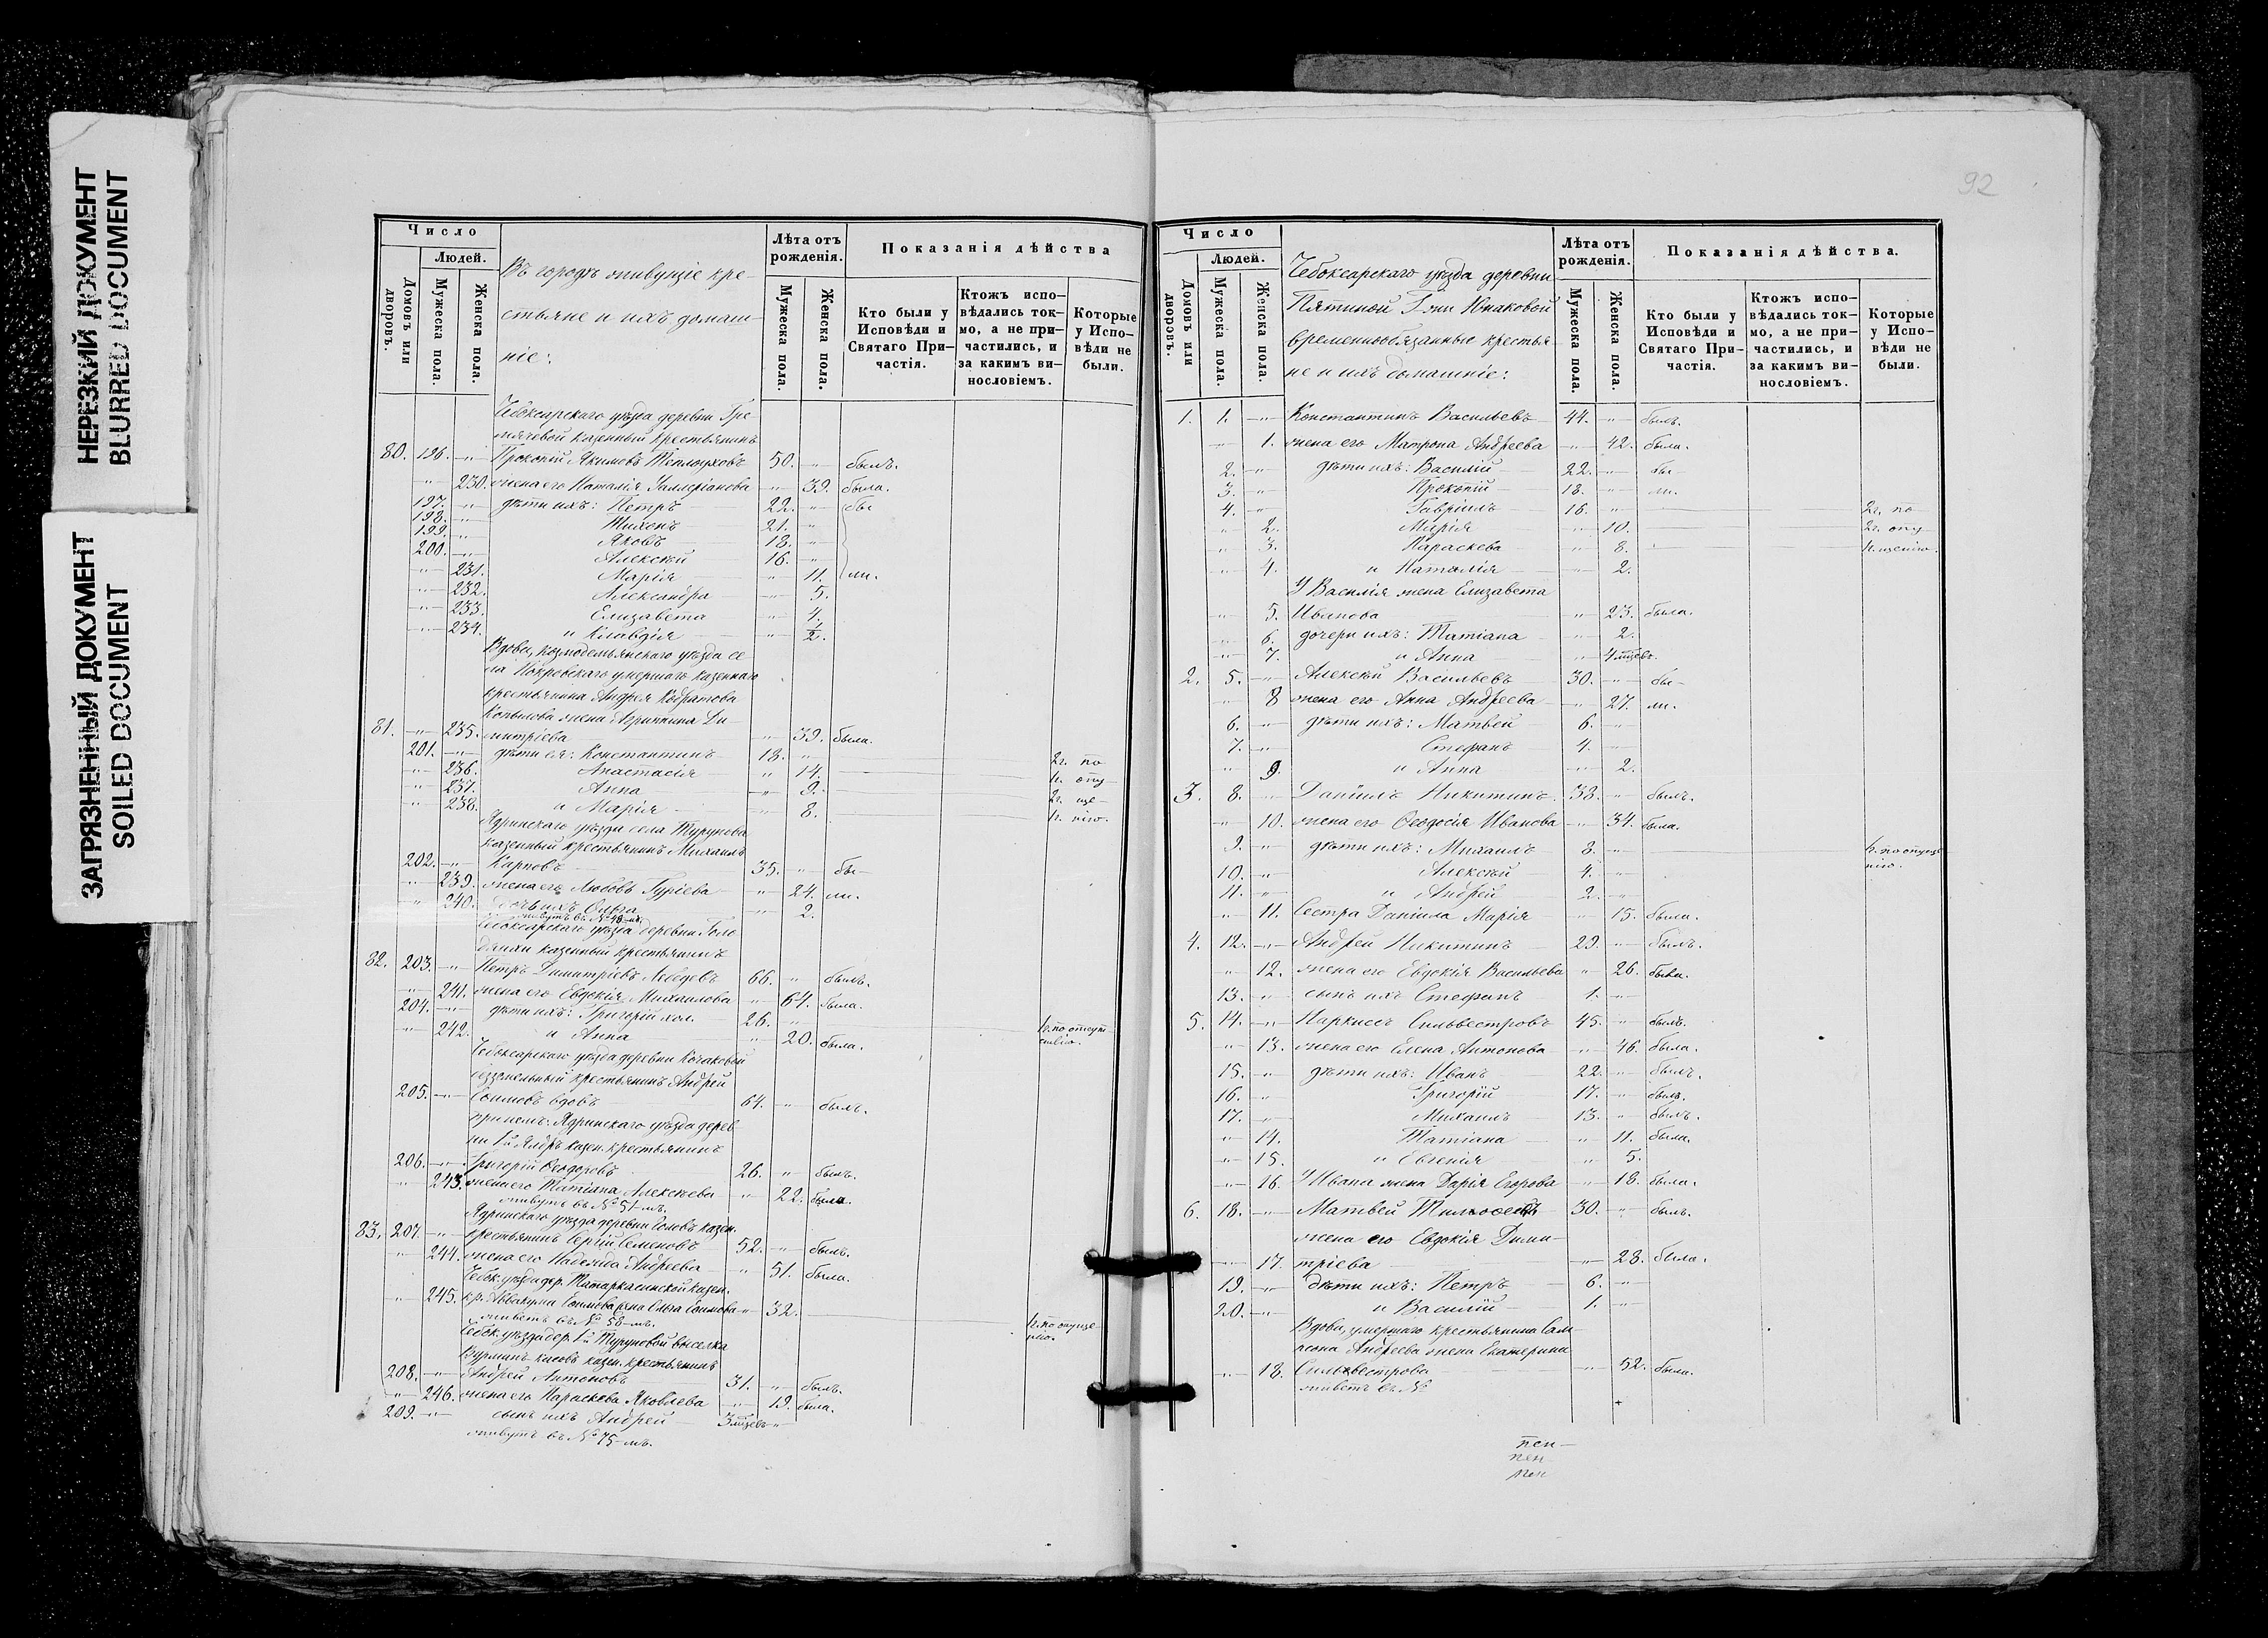 НЕРЕЗКИЙ ДОКУМЕНТ
BLURRED DOCUMENT
ЗАГРЯЗНЕННЫЙ ДОКУМЕНТ
SOILED DOCUMENT
Число
Людей.
Домовъ или дворовъ.
Мужеска пола.
Женска пола.
Въ городѣ живущіе кре-
стьяне и ихъ домаш-
ніе:
Лѣта отъ рожденія.
Мужеска пола.
Женска пола.
Показанія дѣйства
Кто были у Исповѣди и Святаго При-частія.
Ктожъ испо-вѣдались ток-мо, а не при-частились, и за какимъ ви-нословіемъ.
Которые у Испо-вѣди не были.
Чебоксарскаго уѣзда деревни Гре-
мячевой казенный крестьянинъ
80. 196. -"- Прокопій Якимовъ 50. -"- былъ.
-"- 230. жена его Наталія -"- 39. была.
197. -"- дѣти ихъ: Петръ 22. -"- бы
198. -"- Тихонъ 21. -"-
199. -"- Яковъ 18. -"-
200. -"- Алексѣй 16. -"-
-"- 231. Марія -"- 11. ли.
-"- 232. Александра -"- 5.
-"- 233. Елизавета -"- 4.
-"- 234. и Клавдія -"- 2.
Вдова, козмодемьянскаго уѣзда се
ла Покровскаго умершаго казеннаго
крестьянина Андрея
Копылова жена Агриппина Ди-
81. -"- 235. митріева -"- 39. была.
201. -"- дѣти ея: Константинъ 18. -"- 2г. по
-"- 236. Анастасія -"- 14. 1г. опу
-"- 237. Анна -"- 9. 2г. ще-
-"- 238. и Марія -"- 8. 1г. нію.
Ядринскаго уѣзда села Турунова
казенный крестьянинъ Михаилъ
202. -"- Карповъ 35. -"- бы-
-"- 239. жена его Любовь Гуріева -"- 24. ли.
-"- 240. дочь ихъ Ольга -"- 2.
живутъ въ №
Чебоксарскаго уѣзда деревни Голо
казенный крестьянинъ
82. 203. -"- Петръ Димитріевъ Лебедевъ 66. -"- былъ.
-"- 241. жена его Евдокія Михаилова -"- 64. была.
204. -"- дѣти ихъ: Григорій хол. 26. -"- 1г. по отсут
-"- 242. и Анна -"- 20. была. ствію.
Чебоксарскаго уѣзда деревни Кочаковой
безземельный крестьянинъ Андрей
205. -"- вдовъ 64. -"- былъ.
при немъ: Ядринскаго уѣзда дерев
ни 1й казен. крестьянинъ
206. -"- Григорій Ѳеодоровъ 26. -"- былъ.
-"- 243. жена его Татіана Алексѣева -"- 22. была.
живутъ въ № 51-мъ.
Ядринскаго уѣзда деревни казен.
83. 207. -"- крестьянинъ Сергій Семеновъ 52. -"- былъ.
-"- 244. жена его Надежда Андреева -"- 51. была.
Чебок. уѣзда дер. Татаркасинской казен.
-"- 245. кр. Аввакума жена Ольга -"- 32. 1г. по опуще-
живетъ въ № 58-мъ. нію.
Чебок. уѣзда дер. 1й Туруновой выселка
казен. крестьянинъ
208. -"- Андрей Антоновъ 31. -"- былъ.
-"- 246. жена его Параскева Яковлева -"- 19. была.
209. -"- сынъ ихъ Андрей 3 мцевъ -"-
живутъ въ № 75-мъ.
92
Число
Людей.
Домовъ или дворовъ.
Мужеска пола.
Женска пола.
Чебоксарскаго уѣзда деревни
Пятиной Г-жи Юнаковой
временнообязанные крестья-
не и ихъ домашніе:
Лѣта отъ рожденія.
Мужеска пола.
Женска пола.
Показанія дѣйства.
Кто были у Исповѣди и Святаго При-частія.
Ктожъ испо-вѣдались ток-мо, а не при-частились, и за какимъ ви-нословіемъ.
Которые у Испо-вѣди не были.
1. 1. -"- Константинъ Васильевъ 44. -"- былъ.
-"- 1. жена его Матрона Андреева -"- 42. была.
2. -"- дѣти ихъ: Василій 22. -"- бы-
3. -"- Прокопій 18. -"- ли.
4. -"- Гавріилъ 16. -"- 2г. по
-"- 2. Марія -"- 10. 2г. опу
-"- 3. Параскева -"- 8. 1г. щенію.
-"- 4. и Наталія -"- 2.
У Василія жена Елизавета
-"- 5. Иванова -"- 23. была.
-"- 6. дочери ихъ: Татіана -"- 2.
-"- 7. и Анна -"- 4 мцевъ.
2. 5. -"- Алексѣй Васильевъ 30. -"- бы-
-"- 8 жена его Анна Андреева -"- 27. ли.
6. -"- дѣти ихъ: Матвей 6. -"-
7. -"- Стефанъ 4. -"-
-"- 9. и Анна -"- 2.
3. 8. -"- Даніилъ Никитинъ 38. -"- былъ.
-"- 10. жена его Ѳеодосія Иванова -"- 34. была.
9. -"- дѣти ихъ: Михаилъ 8. -"- 1г. по опуще
10. -"- Алексѣй 4. -"- нію.
11. -"- и Андрей 2. -"-
-"- 11. Сестра Даніила Марія -"- 15. была.
4. 12. -"- Андрей Никитинъ 29. -"- былъ.
-"- 12. жена его Евдокія Васильева -"- 26. была.
13. -"- сынъ ихъ Стефанъ 1. -"-
5. 14. -"- Наркиссъ Сильвестровъ 45. -"- былъ.
-"- 13. жена его Елена Антонова -"- 46. была.
15. -"- дѣти ихъ: Иванъ 22. -"- былъ.
16. -"- Григорій 17. -"- былъ.
17. -"- Михаилъ 13. -"- былъ.
-"- 14. Татіана -"- 11. была.
-"- 15. и Евгенія -"- 5.
-"- 16. У Ивана жена Дарія Егорова -"- 18. была.
6. 18. -"- Матвей 30. -"- былъ.
жена его Евдокія Дими-
-"- 17. тріева -"- 28. была.
19. -"- дѣти ихъ: Петръ 6. -"-
20. -"- и Василій 1. -"-
Вдова, умершаго крестьянина Сам-
псона Андреева жена Екатерина
-"- 18. Сильвестрова -"- 52. была.
живетъ въ №
пен-
пен
пен